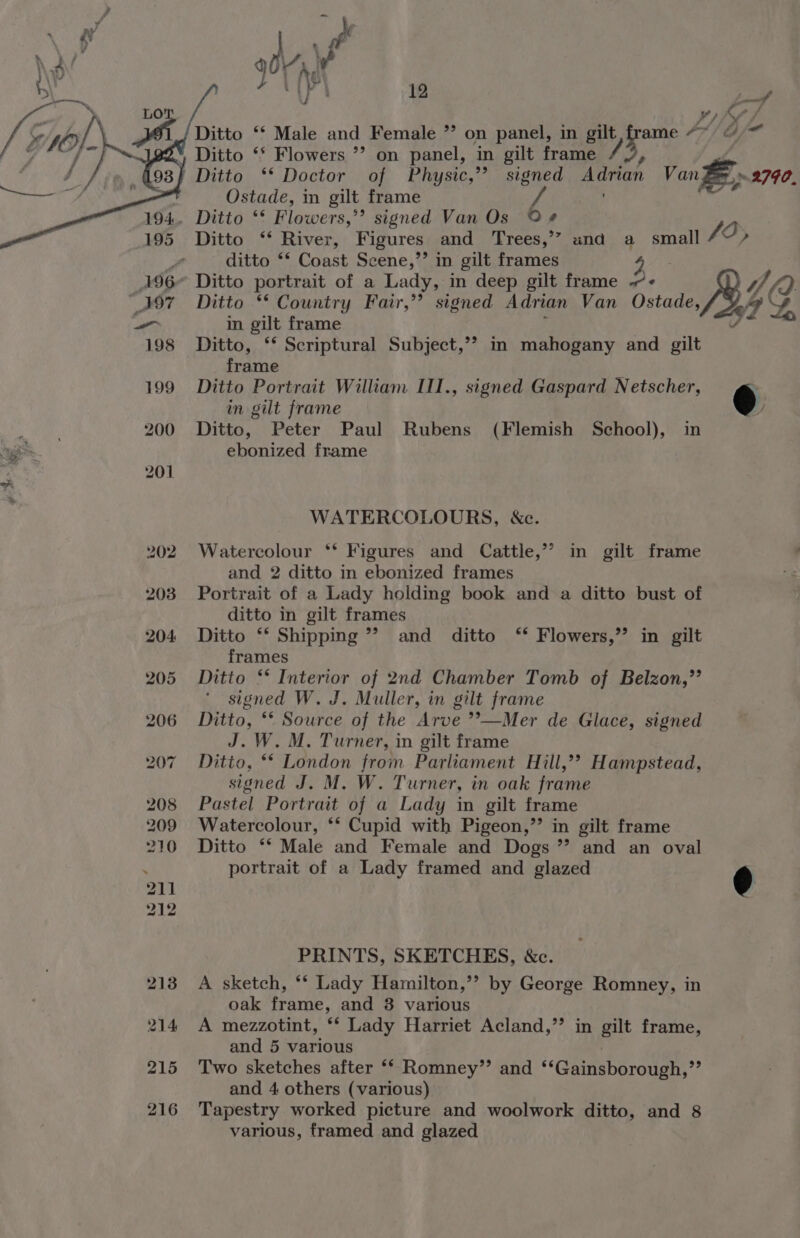 12
LOT
191 Ditto “ Male and Female ” on panel, in gilt frame
192 Ditto “ Flowers ” on panel, in gilt frame
193 Ditto “ Doctor of Physic,” signed Adrian Van
Ostade, in gilt frame
194 Ditto “ Flowers,” signed Van Os
195 Ditto “ River, Figures and Trees,” and a small
ditto “ Coast Scene,” in gilt frames
196 Ditto portrait of a Lady, in deep gilt frame
197 Ditto “ Country Fair,” signed Adrian Van Ostade,
in gilt frame
198 Ditto, “ Scriptural Subject,” in mahogany and gilt
frame
199 Ditto Portrait William III., signed Gaspard Netscher,
in gilt frame
200 Ditto, Peter Paul Rubens (Flemish School), in
ebonized frame
201
WATERCOLOURS, &c.
202 Watercolour “ Figures and Cattle,” in gilt frame
and 2 ditto in ebonized frames
203 Portrait of a Lady holding book and a ditto bust of
ditto in gilt frames
204 Ditto “ Shipping ” and ditto “ Flowers,” in gilt
frames
205 Ditto “ Interior of 2nd Chamber Tomb of Belzon,”
signed W. J. Muller, in gilt frame
206 Ditto, “ Source of the Arve ”—Mer de Glace, signed
J. W. M. Turner, in gilt frame
207 Ditto, “ London from Parliament Hill,” Hampstead,
signed J. M. W. Turner, in oak frame
208 Pastel Portrait of a Lady in gilt frame
209 Watercolour, “ Cupid with Pigeon,” in gilt frame
210 Ditto “ Male and Female and Dogs ” and an oval
portrait of a Lady framed and glazed
211
212
PRINTS, SKETCHES, &c.
213 A sketch, “ Lady Hamilton,” by George Romney, in
oak frame, and 3 various
214 A mezzotint, “ Lady Harriet Acland,” in gilt frame,
and 5 various
215 Two sketches after “ Romney” and “Gainsborough,”
and 4 others (various)
216 Tapestry worked picture and woolwork ditto, and 8
various, framed and glazed